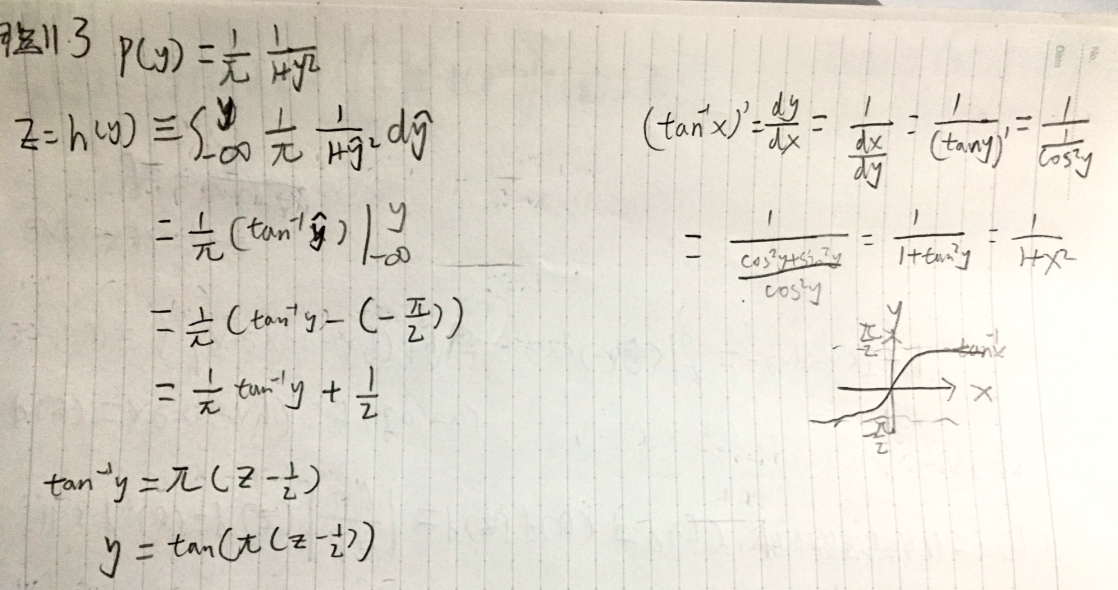 演習11.3 p(y) = 1/π 1/(1+y²)
z = h(y) ≡ ∫_{-∞}^{y} 1/π 1/(1+ŷ²) dŷ
= 1/π (tan⁻¹ŷ) |_{-∞}^{y}
= 1/π (tan⁻¹y - (-π/2))
= 1/π tan⁻¹y + 1/2
tan⁻¹y = π(z - 1/2)
y = tan(π(z - 1/2))
(tan⁻¹x)' = dy/dx = 1/(dx/dy) = 1/(tany)' = 1/(1/cos²y)
= 1/((cos²y+sin²y)/cos²y) = 1/(1+tan²y) = 1/(1+x²)
y
π/2
tan⁻¹x
x
-π/2